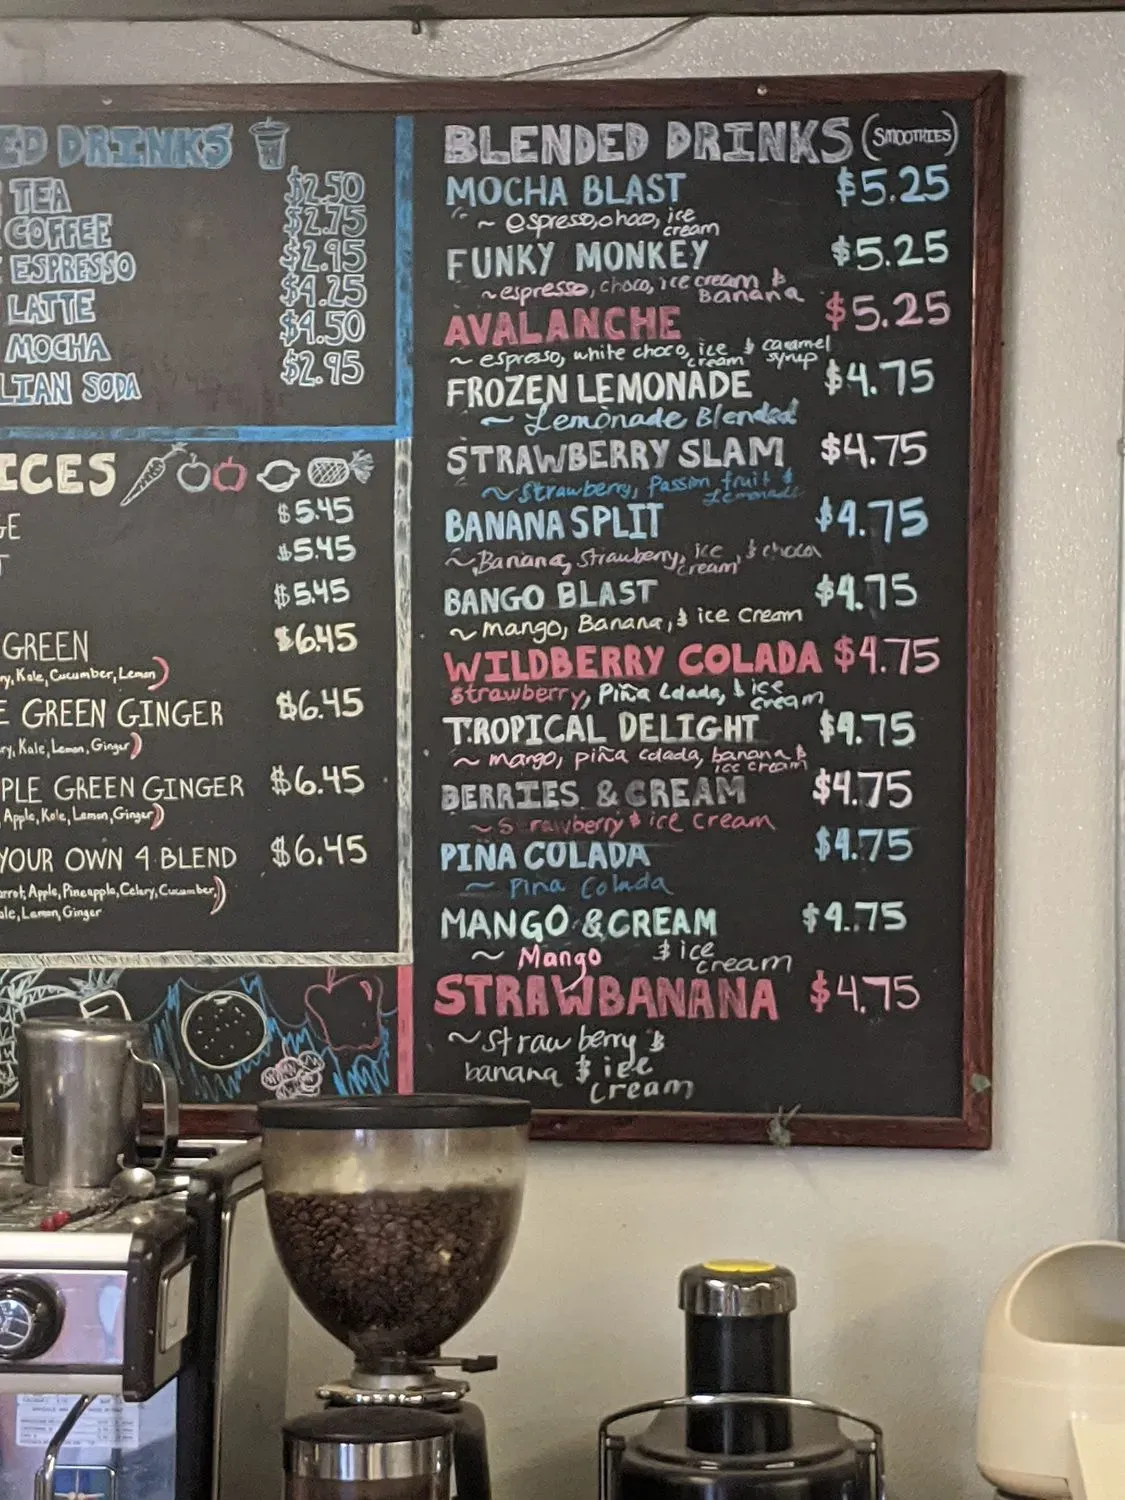 ED DRINKS
TEA $2.50
COFFEE $2.75
ESPRESSO $2.95
LATTE $4.25
MOCHA $4.50
LIAN SODA $2.95
ICES
GE $5.45
T $5.45
$5.45
GREEN $6.45
ry, Kale, Cucumber, Lemon)
E GREEN GINGER $6.45
ry, Kale, Lemon, Ginger)
PLE GREEN GINGER $6.45
, Apple, Kale, Lemon, Ginger)
YOUR OWN 4 BLEND $6.45
arrot, Apple, Pineapple, Celery, Cucumber,)
ale, Lemon, Ginger
BLENDED DRINKS (SMOOTHIES)
MOCHA BLAST $5.25
~ espresso, choco, ice cream
FUNKY MONKEY $5.25
~espresso, choco, ice cream & Banana
AVALANCHE $5.25
~ espresso, white choco, ice cream & caramel syrup
FROZEN LEMONADE $4.75
~ Lemonade Blended
STRAWBERRY SLAM $4.75
~Strawberry, Passion fruit & Lemonade
BANANA SPLIT $4.75
~Banana, Strawberry, ice cream, & choco
BANGO BLAST $4.75
~ mango, Banana, & ice Cream
WILDBERRY COLADA $4.75
Strawberry, Piña Colada, & ice cream
TROPICAL DELIGHT $4.75
~ mango, piña colada, banana & ice cream
BERRIES & CREAM $4.75
~S rawberry & ice Cream
PINA COLADA $4.75
~ Pina Colada
MANGO & CREAM $4.75
~ Mango & ice cream
STRAWBANANA $4.75
~Straw berry &
banana & ice
Cream